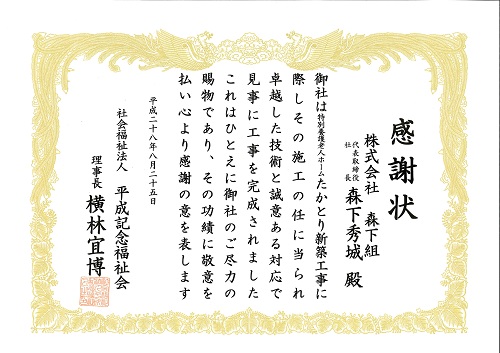 感謝状
株式会社 森下組
代表取締役
社長 森下秀城 殿
御社は特別養護老人ホームたかとり新築工事に
際しその施工の任に当られ
卓越した技術と誠意ある対応で
見事に工事を完成されました
これはひとえに御社のご尽力の
賜物であり、その功績に敬意を
払い心より感謝の意を表します
平成二十八年八月二十五日
社会福祉法人 平成記念福祉会
理事長 横林宜博